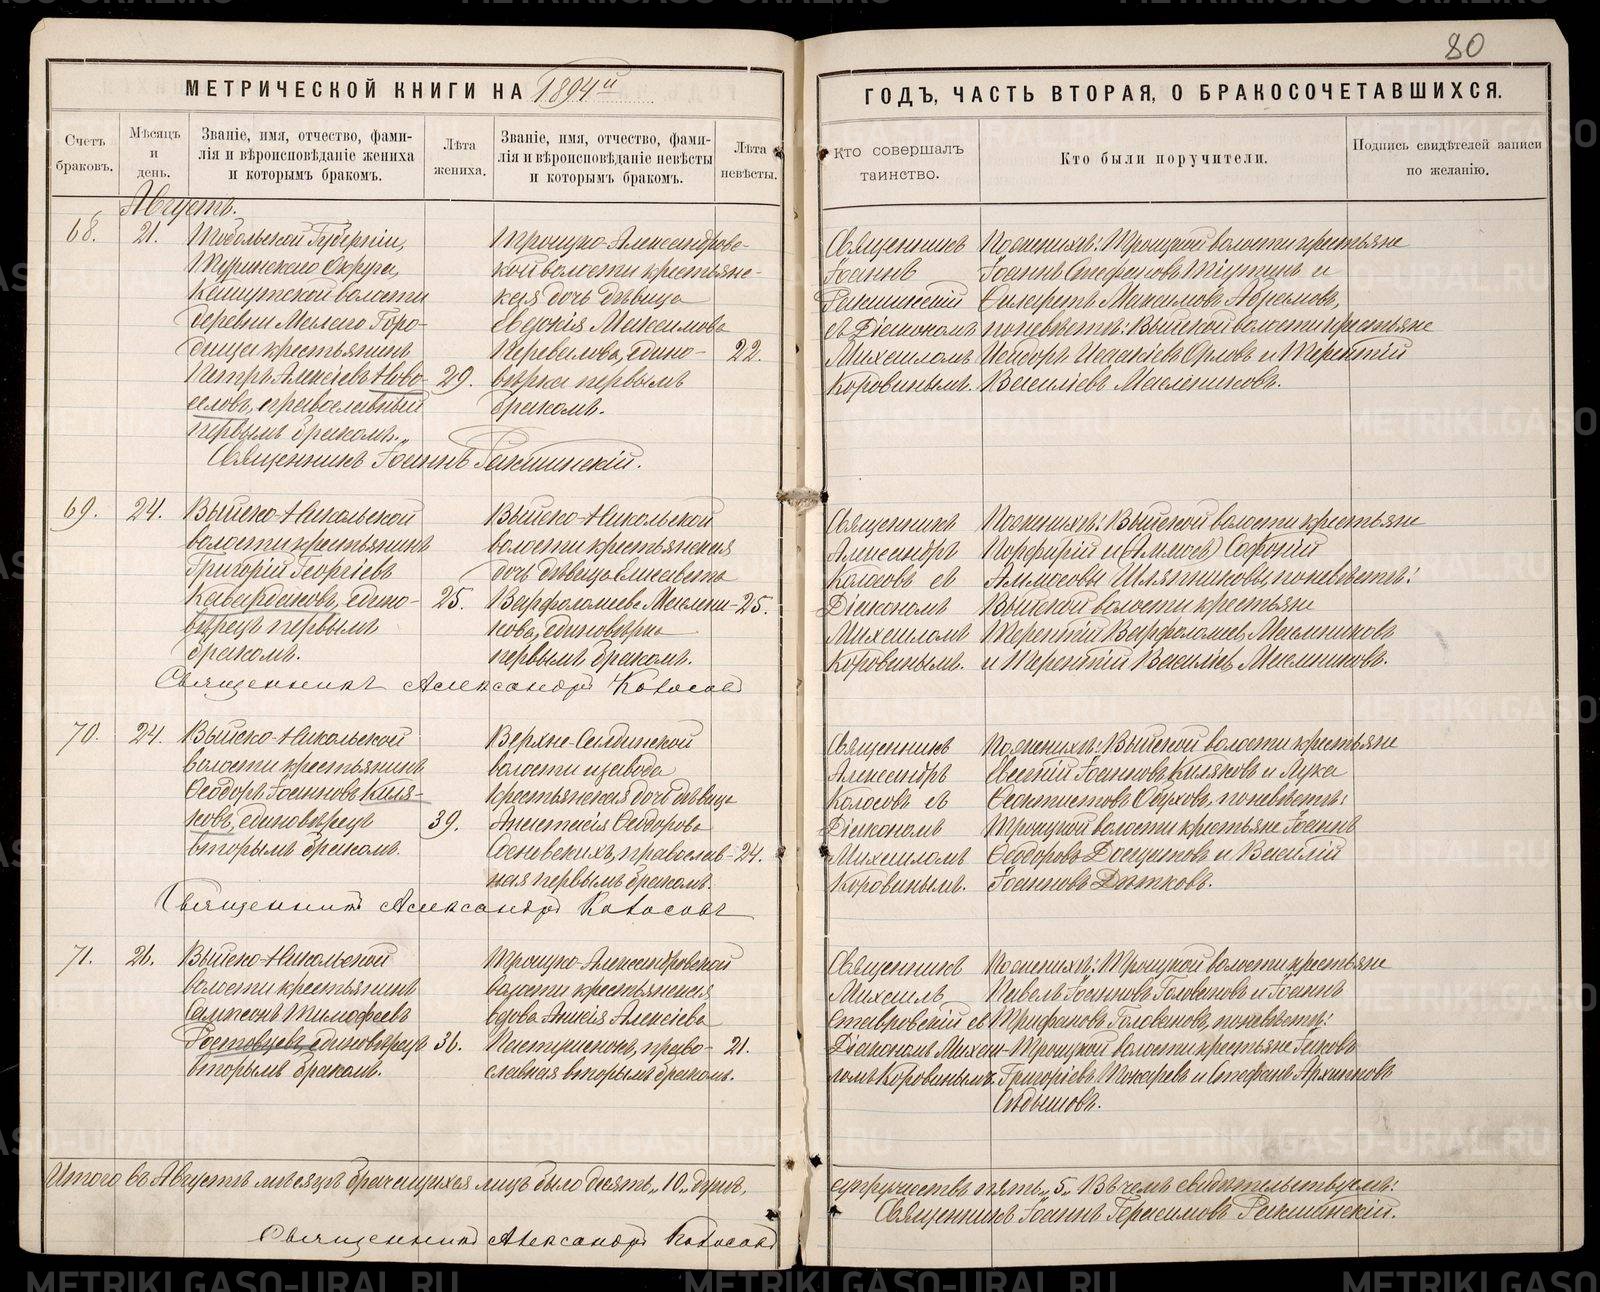 80
МЕТРИЧЕСКОЙ КНИГИ НА 1894й
ГОДЪ, ЧАСТЬ ВТОРАЯ, О БРАКОСОЧЕТАВШИХСЯ.
Счетъ браковъ.
Мѣсяцъ и день.
Званіе, имя, отчество, фами-
лія и вѣроисповѣданіе жениха
и которымъ бракомъ.
Лѣта жениха.
Званіе, имя, отчество, фами-
лія и вѣроисповѣданіе невѣсты
и которымъ бракомъ.
Лѣта невѣсты.
Кто совершалъ
таинство.
Кто были поручители.
Подпись свидѣтелей записи
по желанію.
Августъ.
68.
21.
Тобольской Губерніи,
Туринскаго Округа,
волости
деревни Малаго Горо-
дища крестьянинъ
Петръ Алексіевъ Ново-
селовъ, православный
первымъ бракомъ.
29.
Троицко-Александровс-
кой волости крестьянс-
кая дочь дѣвица
Евдокія Максимова
Перевалова, едино-
вѣрка первымъ
бракомъ.
22.
Священникъ
Іоаннъ
Ракшинскій
съ Діакономъ
Михаиломъ
Коровинымъ.
По женихѣ: Троицкой волости крестьяне
Іоаннъ Стефановъ и
Максимовъ
по невѣстѣ: Выйской волости крестьяне
Исидоръ Исаакіевъ Орловъ и Терентій
Василіевъ Маслениковъ.
Священникъ Іоаннъ Ракшинскій.
69.
24.
Выйско-Никольской
волости крестьянинъ
Григорій Георгіевъ
едино-
вѣрецъ первымъ
бракомъ.
25.
Выйско-Никольской
волости крестьянская
дочь дѣвица Елисавета
Варфоломеева Маслени-
кова, единовѣрка
первымъ бракомъ.
25.
Священникъ
Александръ
Колосовъ съ
Діакономъ
Михаиломъ
Коровинымъ.
По женихѣ: Выйской волости крестьяне
Порфирій и Софоній
Шляпниковы по невѣстѣ:
Выйской волости крестьяне
Терентій Варфоломеевъ Маслениковъ
и Терентій Василіевъ Маслениковъ.
Священникъ Александръ Колосовъ
70.
24.
Выйско-Никольской
волости крестьянинъ
Ѳеодоръ Іоанновъ Киля-
ковъ, единовѣрецъ
вторымъ бракомъ.
39.
Верхне-Салдинской
волости и завода
крестьянская дочь дѣвица
Анастасія Ѳеодорова
Сосновскихъ, православ-
ная первымъ бракомъ.
24.
Священникъ
Александръ
Колосовъ съ
Діакономъ
Михаиломъ
Коровинымъ.
По женихѣ: Выйской волости крестьяне
Іоанновъ Киляковъ и Лука
Ѳеоктистовъ Обуховъ, по невѣстѣ:
Троицкой волости крестьяне Іоаннъ
Ѳеодоровъ и Василій
Іоанновъ Дятковъ.
Священникъ Александръ Колосовъ
71.
26.
Выйско-Никольской
волости крестьянинъ
Сампсонъ Тимофеевъ
Ростовцевъ, единовѣрецъ
вторымъ бракомъ.
36.
Троицко-Александровской
волости крестьянская
вдова Алексіева
право-
славная вторымъ бракомъ.
21.
Священникъ
Михаилъ
Ставровскій съ
Діакономъ Михаи-
ломъ Коровинымъ.
По женихѣ: Троицкой волости крестьяне
Павелъ Іоанновъ Головановъ и Іоаннъ
Трифановъ Головановъ, по невѣстѣ:
Троицкой волости крестьяне Іаковъ
Григоріевъ и Стефанъ Архиповъ
Сѣдышовъ.
Итого въ Августѣ мѣсяцѣ брачащихся лицъ было десять „10„ душъ,
супружествъ пять „5„ Въ чемъ свидѣтельствуемъ:
Священникъ Іоаннъ Герасимовъ Ракшинскій.
Священникъ Александръ Колосовъ
METRIKI.GASO-URAL.RU